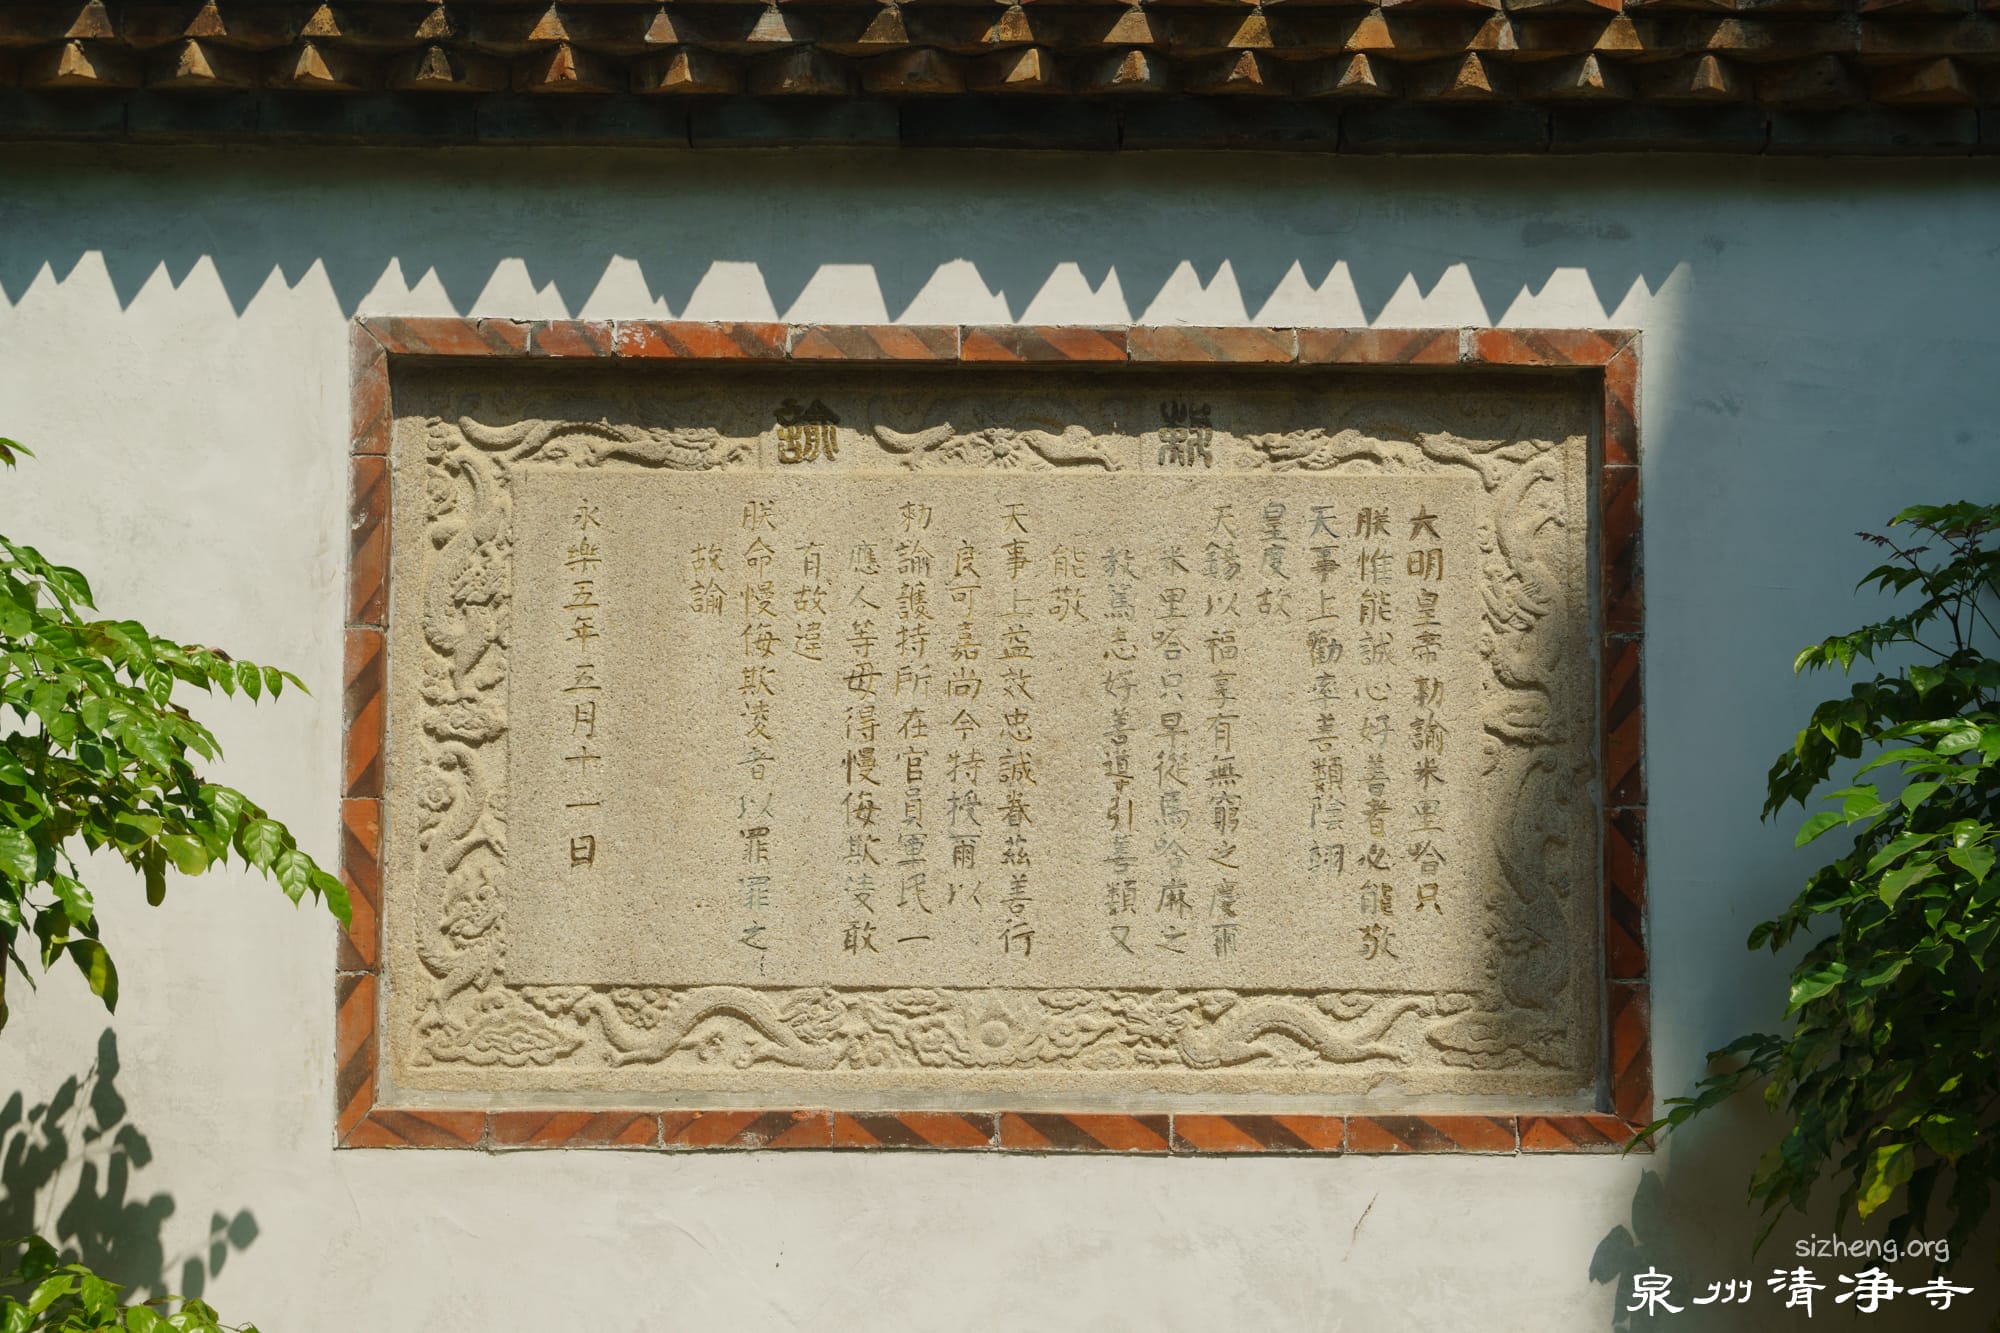 敕諭
大明皇帝勅諭米里哈只
朕惟能誠心好善者必能敬
天事上勸率善類陰翊
皇度故
天錫以福享有無窮之慶爾
米里哈只早從馬哈麻之
教篤志好善導引善類又
能敬
天事上益效忠誠眷茲善行
良可嘉尚今特授爾以
勅諭護持所在官員軍民一
應人等毋得慢侮欺凌敢
有故違
朕命慢侮欺凌者以罪罪之
故諭
永樂五年五月十一日
sizheng.org
泉州清净寺